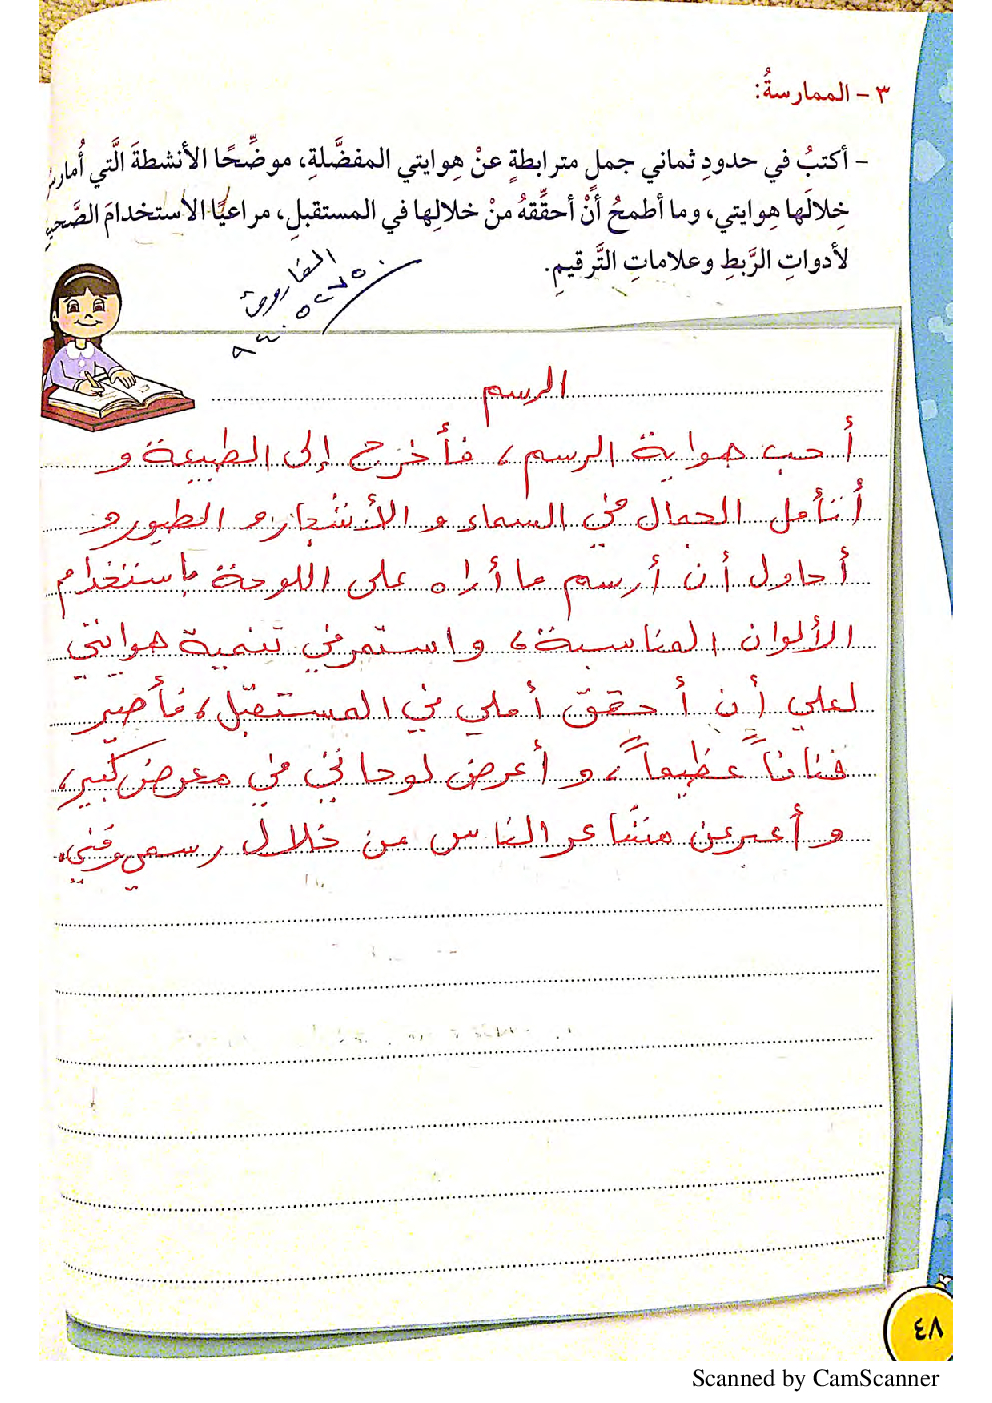 ٣ - الممارسةُ:
- أكتبُ في حدودِ ثماني جملٍ مترابطةٍ عنْ هوايتي المفضَّلةِ، موضِّحًا الأنشطةَ الَّتي أُمارسُ
خِلالَها هِوايتي، وما أطمحُ أنْ أحقِّقهُ منْ خلالِها في المستقبلِ، مراعيًا الاستخدامَ الصَّحيحَ
لأدواتِ الرَّبطِ وعلاماتِ التَّرقيمِ.
الرسم
أحب هواية الرسم، فأخرج إلى الطبيعة و
أتأمل الجمال في السماء و الأشجار و الطيور و
أحاول أن أرسم ما أراه على اللوحة باستخدام
الألوان المناسبة، و استمر في تنمية هوايتي
لعلي أن أحقق أملي في المستقبل، فأصير
فناناً عظيماً، و أعرض لوحاتي في معرض كبير،
و أعبر عن مشاعر الناس من خلال رسمي وفني.
٤٨
Scanned by CamScanner